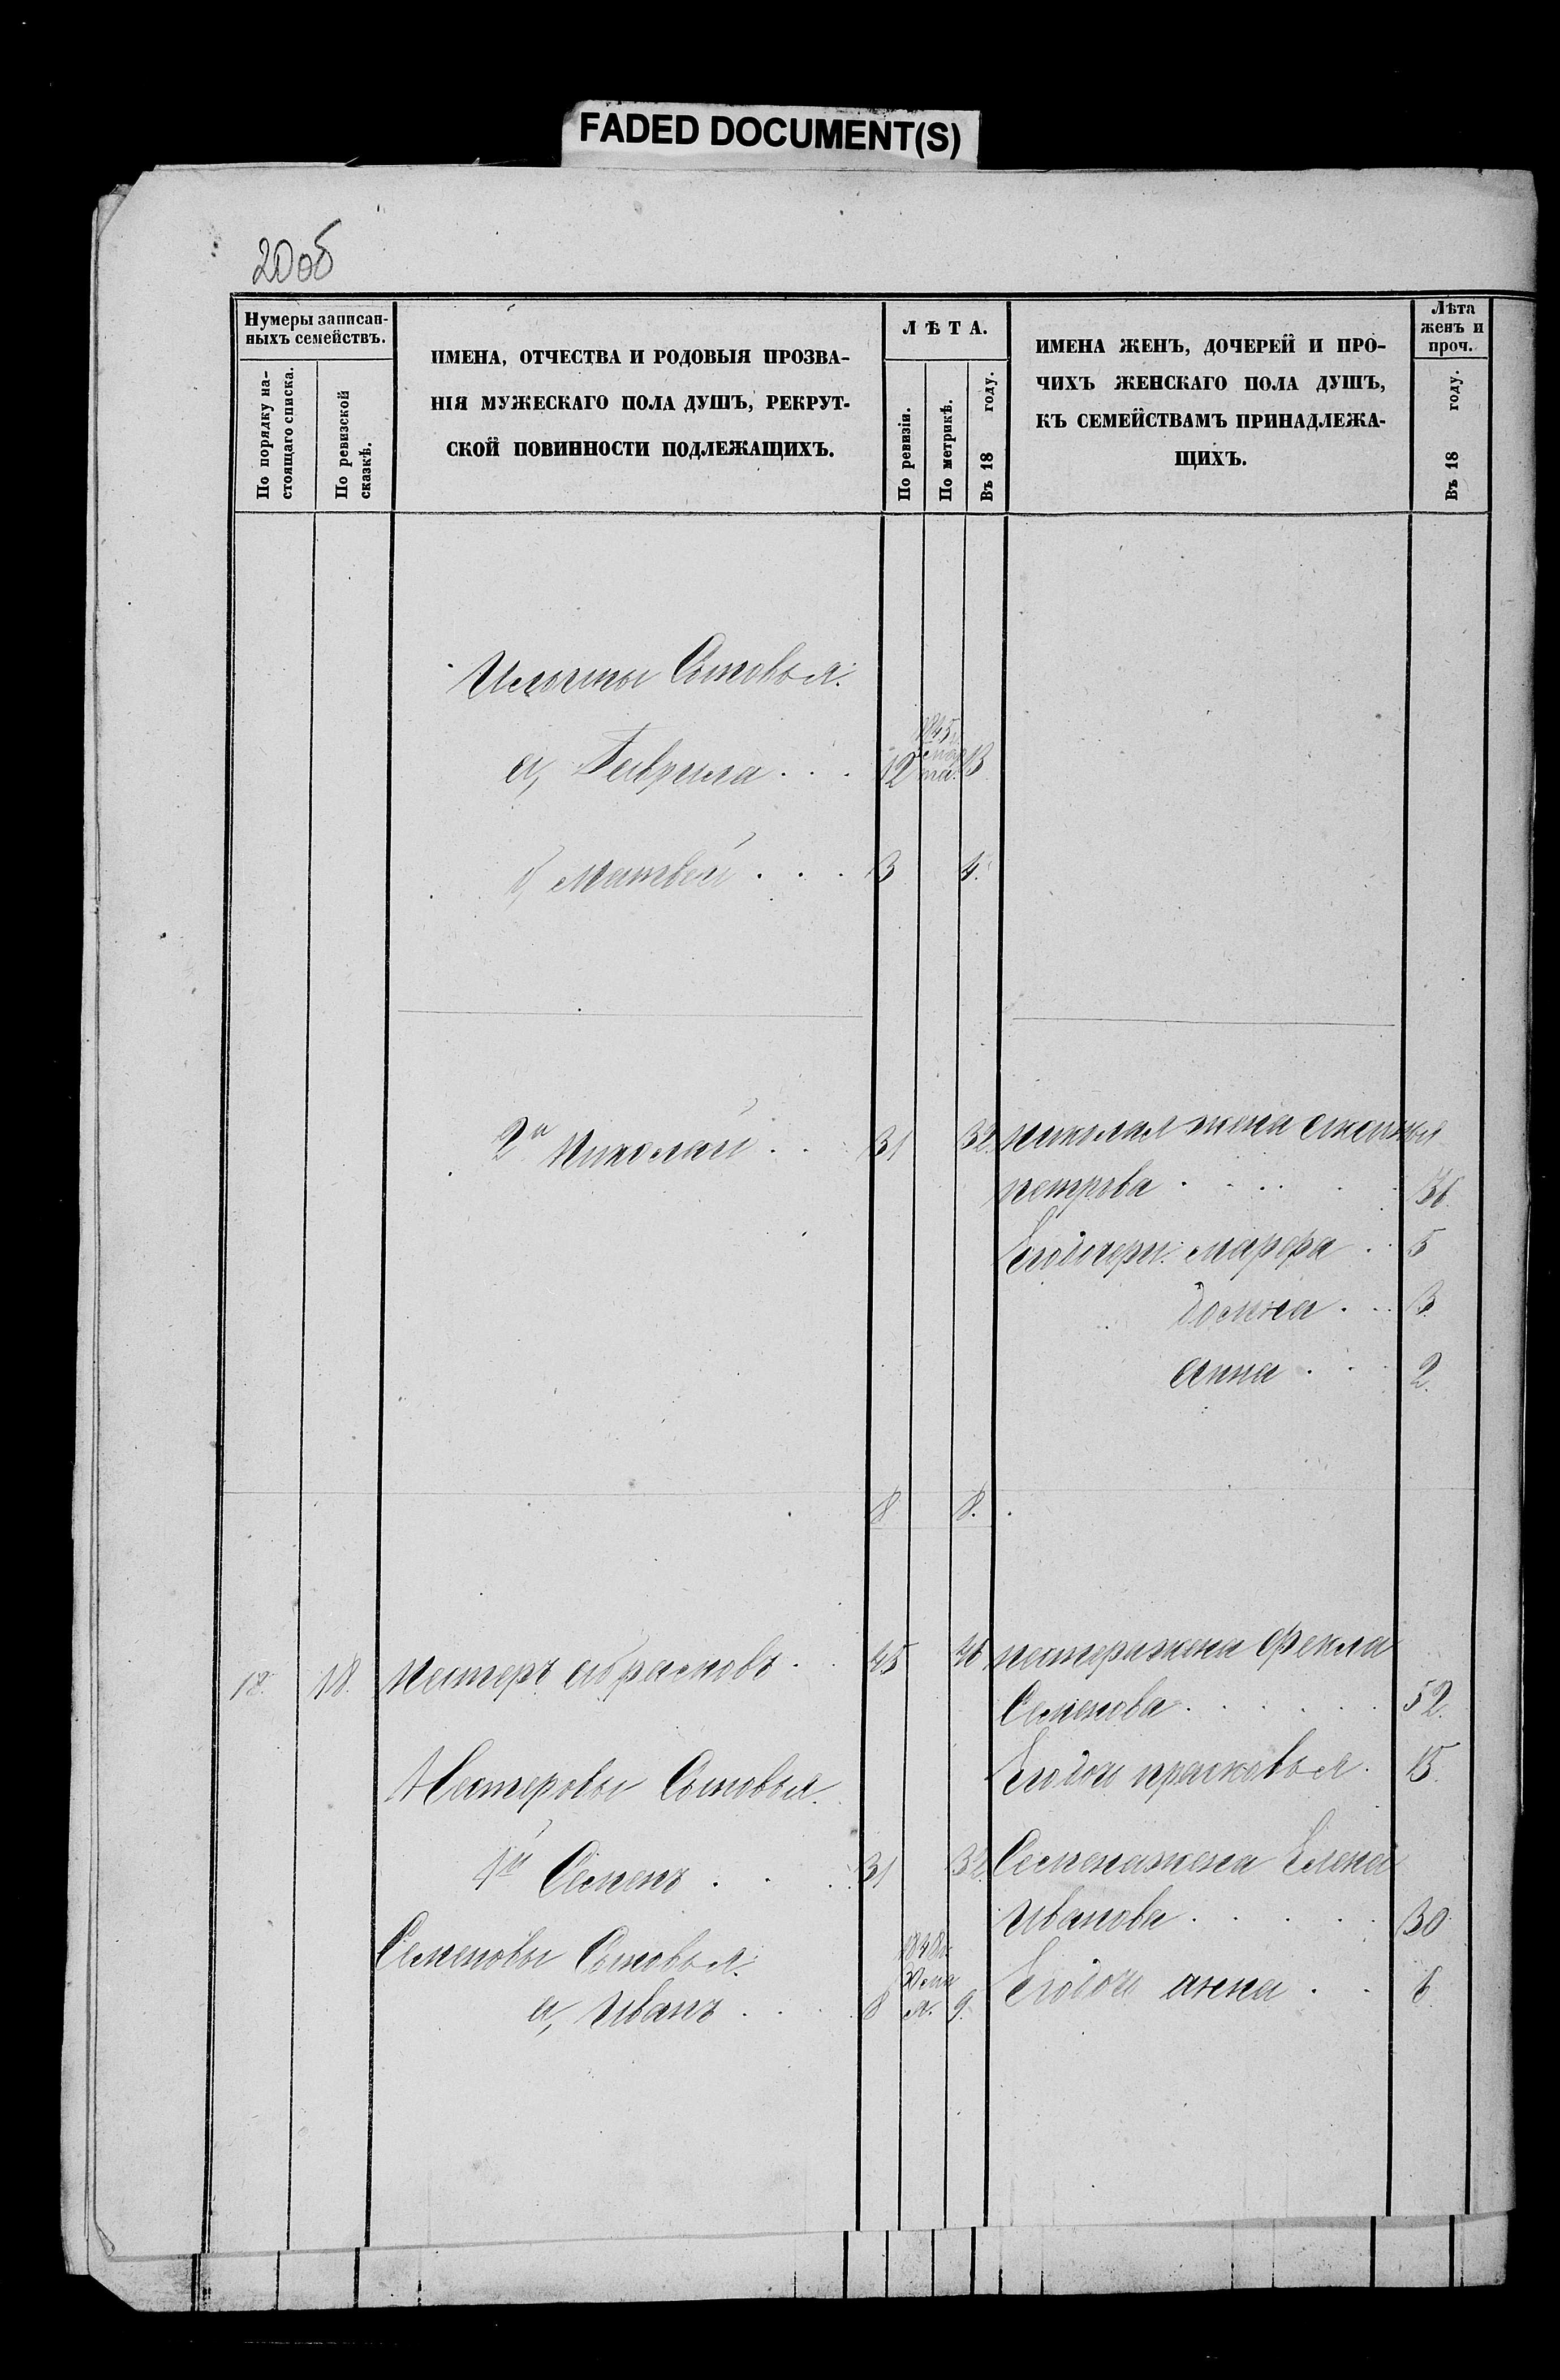 FADED DOCUMENT(S)
20 об
Нумеры записан-
ныхъ семействъ.
По порядку на-
стоящаго списка.
По ревизской
сказкѣ.
ИМЕНА, ОТЧЕСТВА И РОДОВЫЯ ПРОЗВА-
НІЯ МУЖЕСКАГО ПОЛА ДУШЪ, РЕКРУТ-
СКОЙ ПОВИННОСТИ ПОДЛЕЖАЩИХЪ.
ЛѢТА.
По ревизіи.
По метрикѣ.
Въ 18 году.
ИМЕНА ЖЕНЪ, ДОЧЕРЕЙ И ПРО-
ЧИХЪ ЖЕНСКАГО ПОЛА ДУШЪ,
КЪ СЕМЕЙСТВАМЪ ПРИНАДЛЕЖА-
ЩИХЪ.
Лѣта
женъ и
проч.
Въ 18 году.
Сыновья.
а, Гаврила . . . 12 1845 13
б, Матвей . . . 3 4.
2й Николай . . 31 32. Николая жена
петрова . . . . . 36.
Егодочери: марфа . . 5
домна . . . 3.
анна . . . 2.
8 8.
18. 18. Нестеръ . . 45 46 нестеражена фекла
Семенова . . . . . 52.
Нестеровы Сыновья. Егодочь прасковья . 15.
1й Семенъ . . . 31 32. Семенажена Елена
Иванова . . . . . 30
Семеновы Сыновья. 1848
а, Иванъ . . . 8 9. Егодочь анна . . 6.